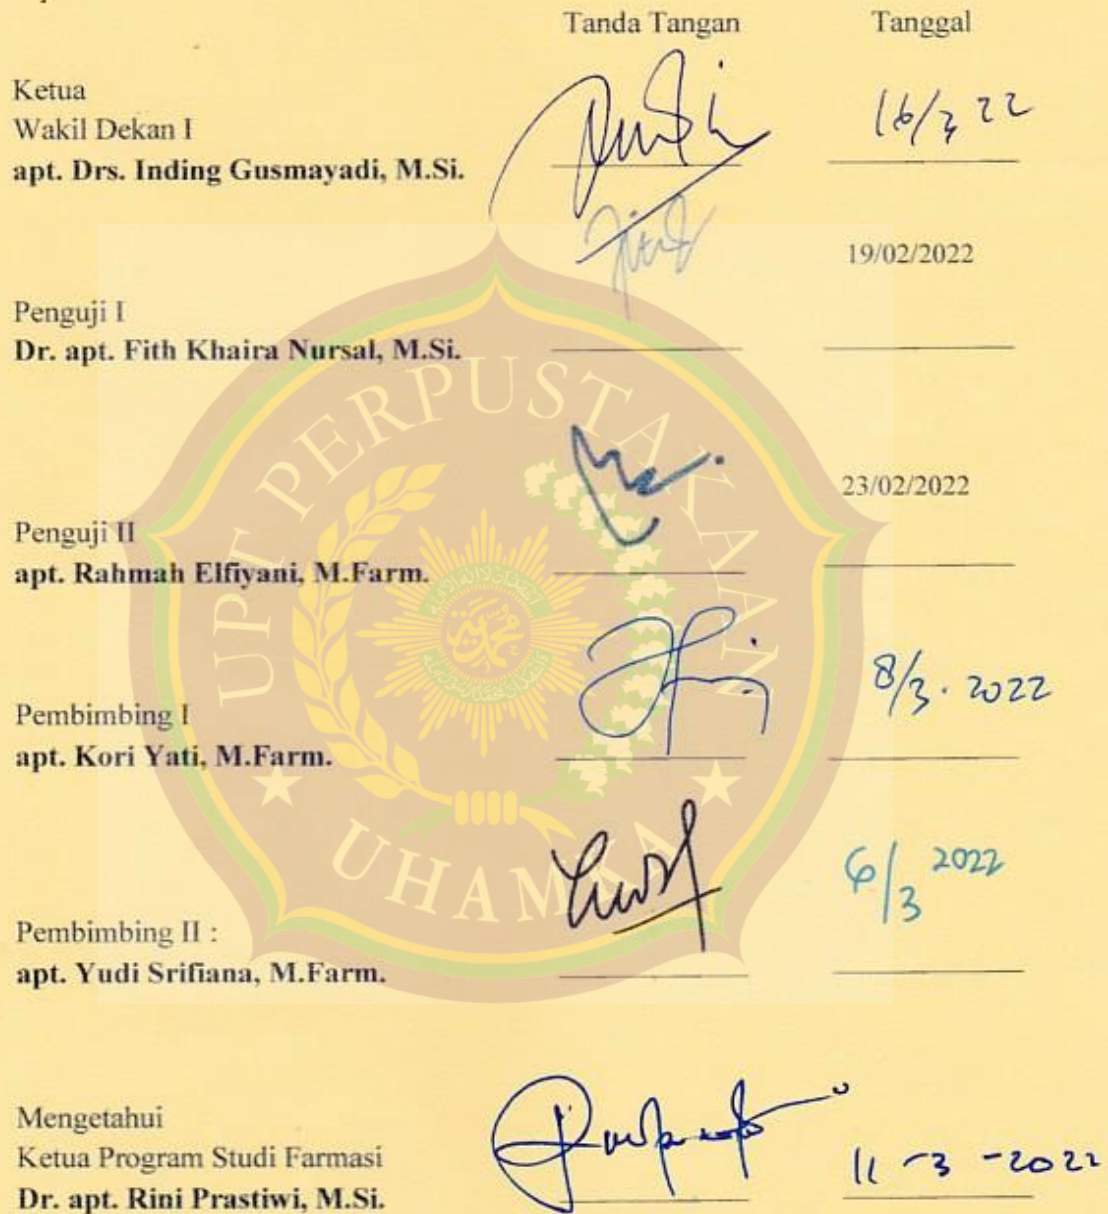 Tanda Tangan Tanggal
Ketua
Wakil Dekan I
apt. Drs. Inding Gusmayadi, M.Si.
16/3 22
19/02/2022
Penguji I
Dr. apt. Fith Khaira Nursal, M.Si.
23/02/2022
Penguji II
apt. Rahmah Elfiyani, M.Farm.
8/3. 2022
Pembimbing I
apt. Kori Yati, M.Farm.
6/3 2022
Pembimbing II :
apt. Yudi Srifiana, M.Farm.
Mengetahui
Ketua Program Studi Farmasi
Dr. apt. Rini Prastiwi, M.Si.
11 -3 -2022
UPT PERPUSTAKAAN
UHAMKA